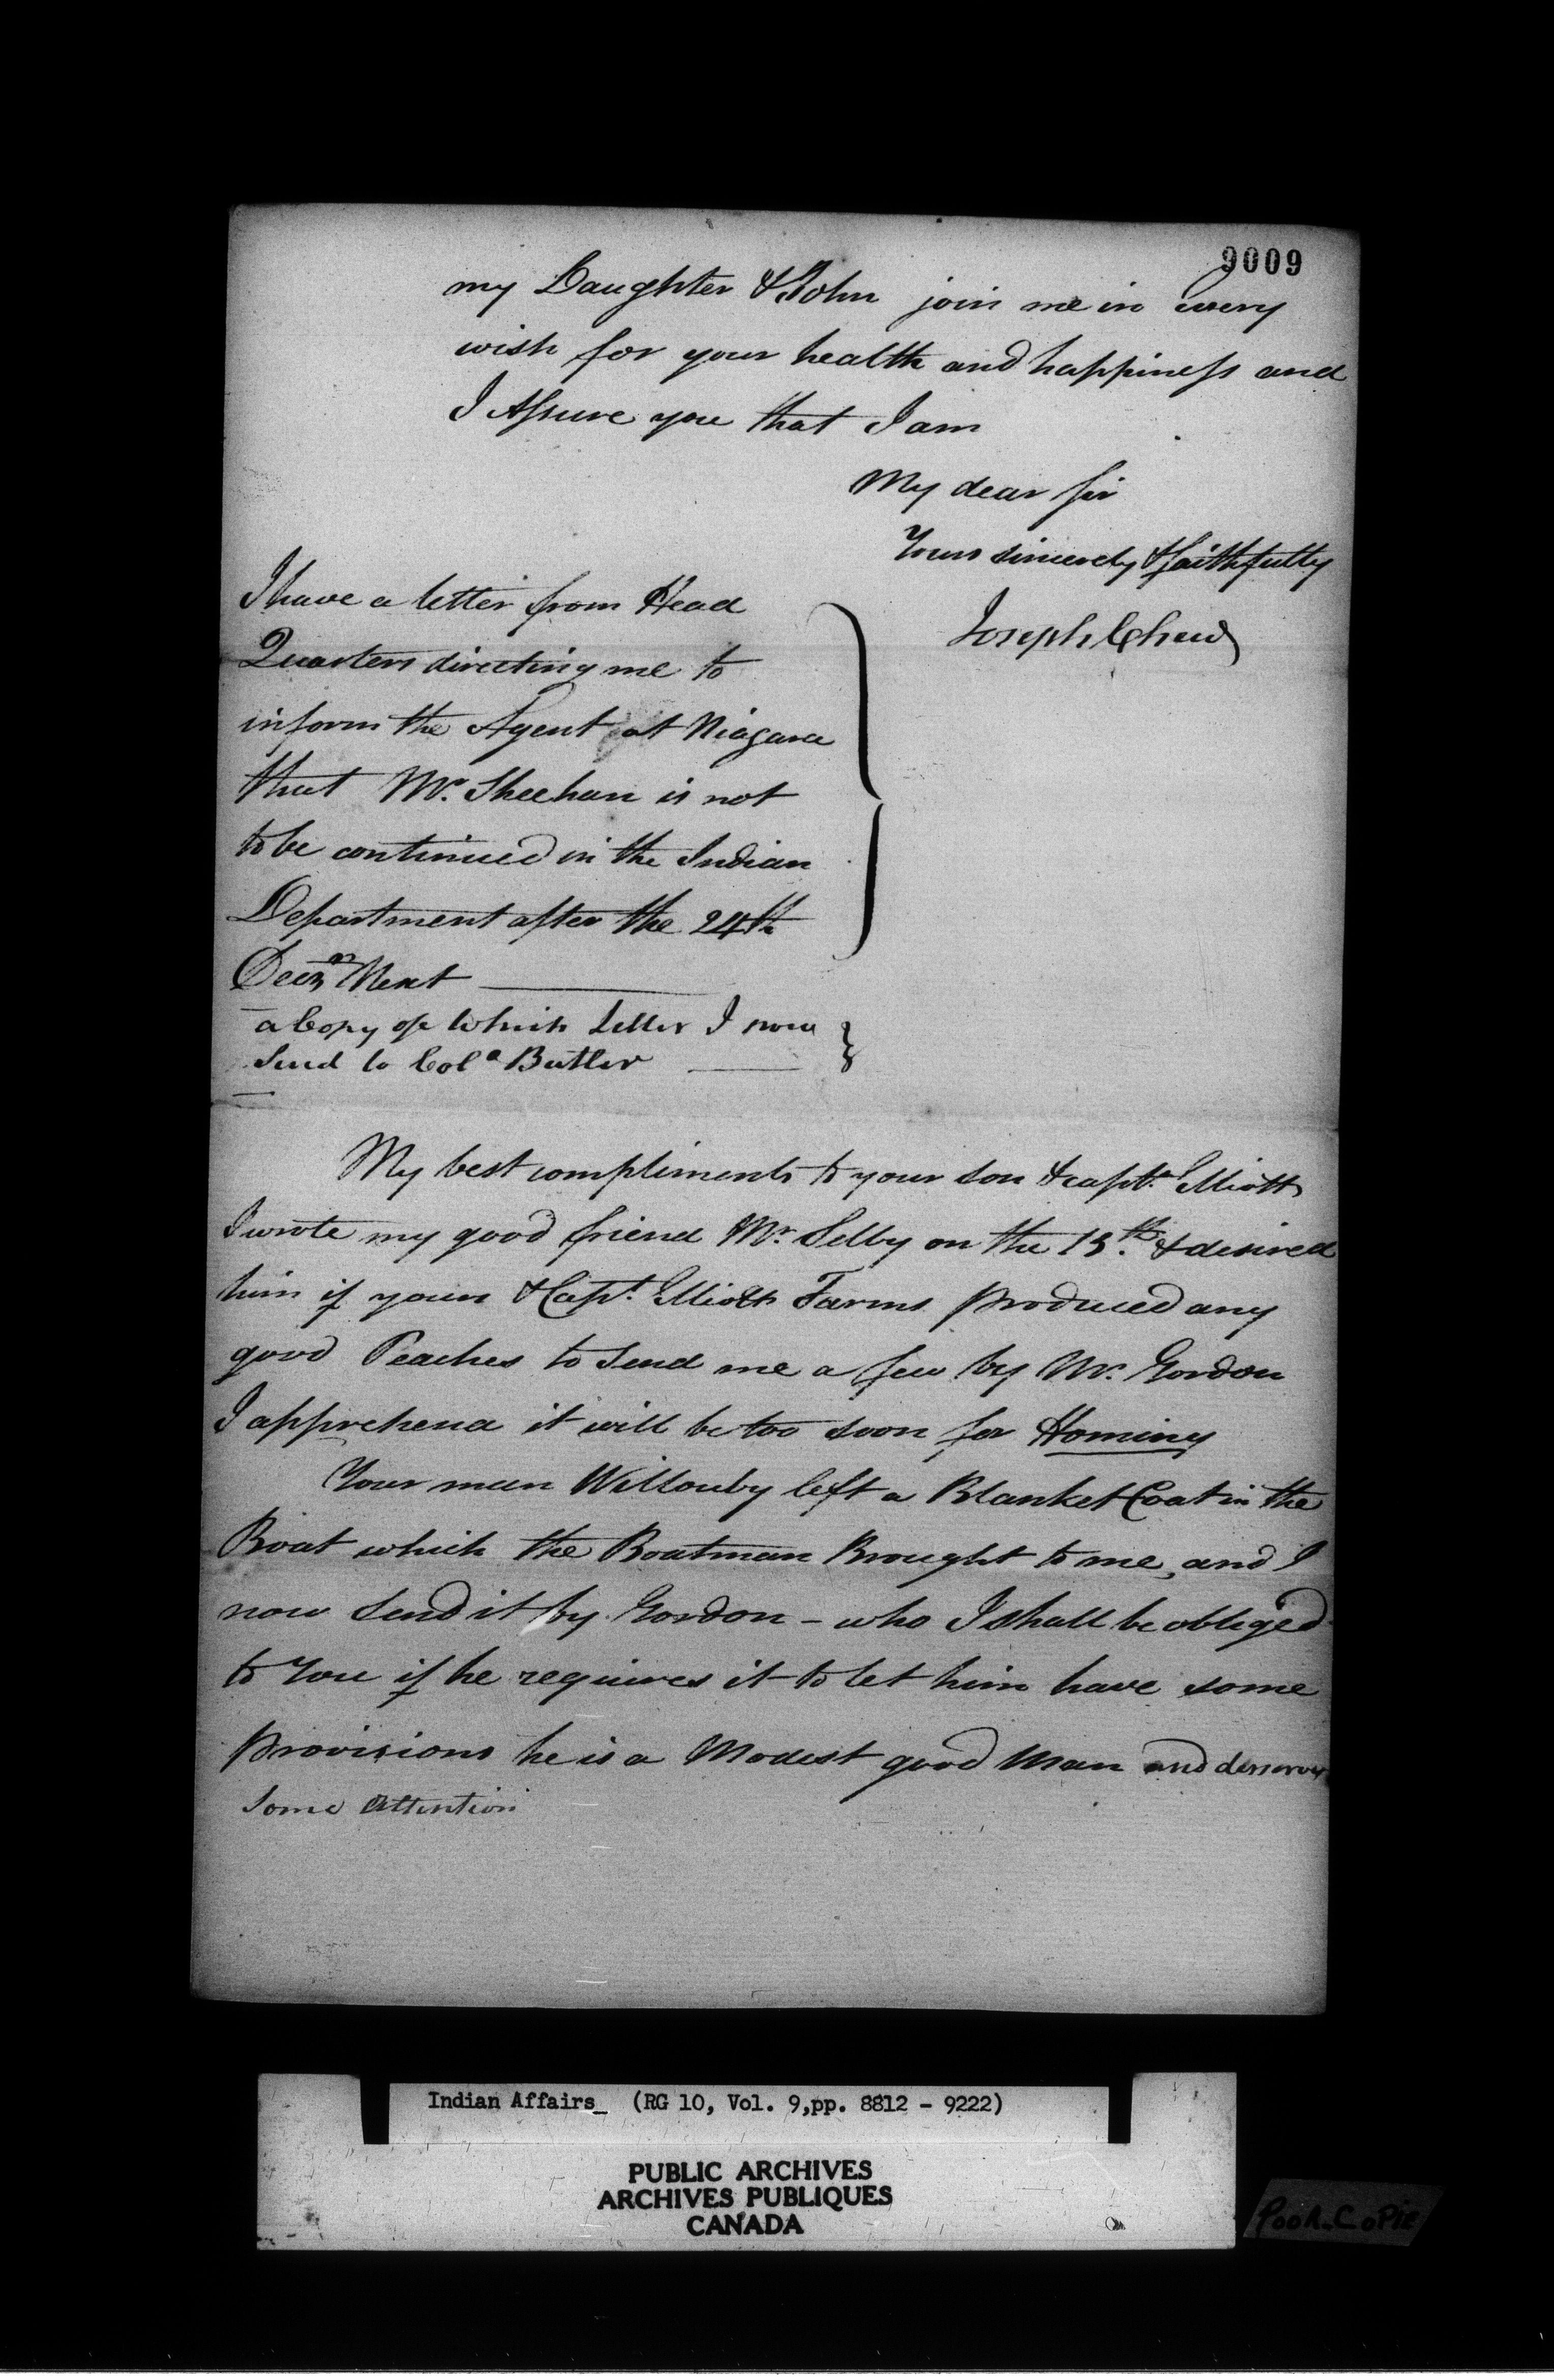 9009
my Daughter & John join me in every
wish for your health and happiness and
I Assure you that I am
My dear Sir
Yours sincerely & faithfully
Joseph Chew
I have a letter from Head
Quarters directing me to
inform the Agent at Niagara
that Mr. Sheehan is not
to be continued in the Indian
Department after the 24th
Decr Next
a Copy of Which Letter I now
Send to Colo Butler
My best compliments to your son & capt. Elliott
I wrote my good friend Mr. Selby on the 13th. & desired
him if yours & Capt. Elliotts Farms produced any
good Peaches to Send me a few by Mr. Gordon
I apprehend it will be too soon for Hominy
Your man Willouby left a Blanket Coat in the
Boat which the Boatman Brought to me, and I
now Send it by Gordon - who I shall be obliged
to You if he requires it to let him have some
provisions he is a Modest good Man and deserves
Some Attention
Indian Affairs_ (RG 10, Vol. 9,pp. 8812 - 9222)
PUBLIC ARCHIVES
ARCHIVES PUBLIQUES
CANADA
Poor. Copie